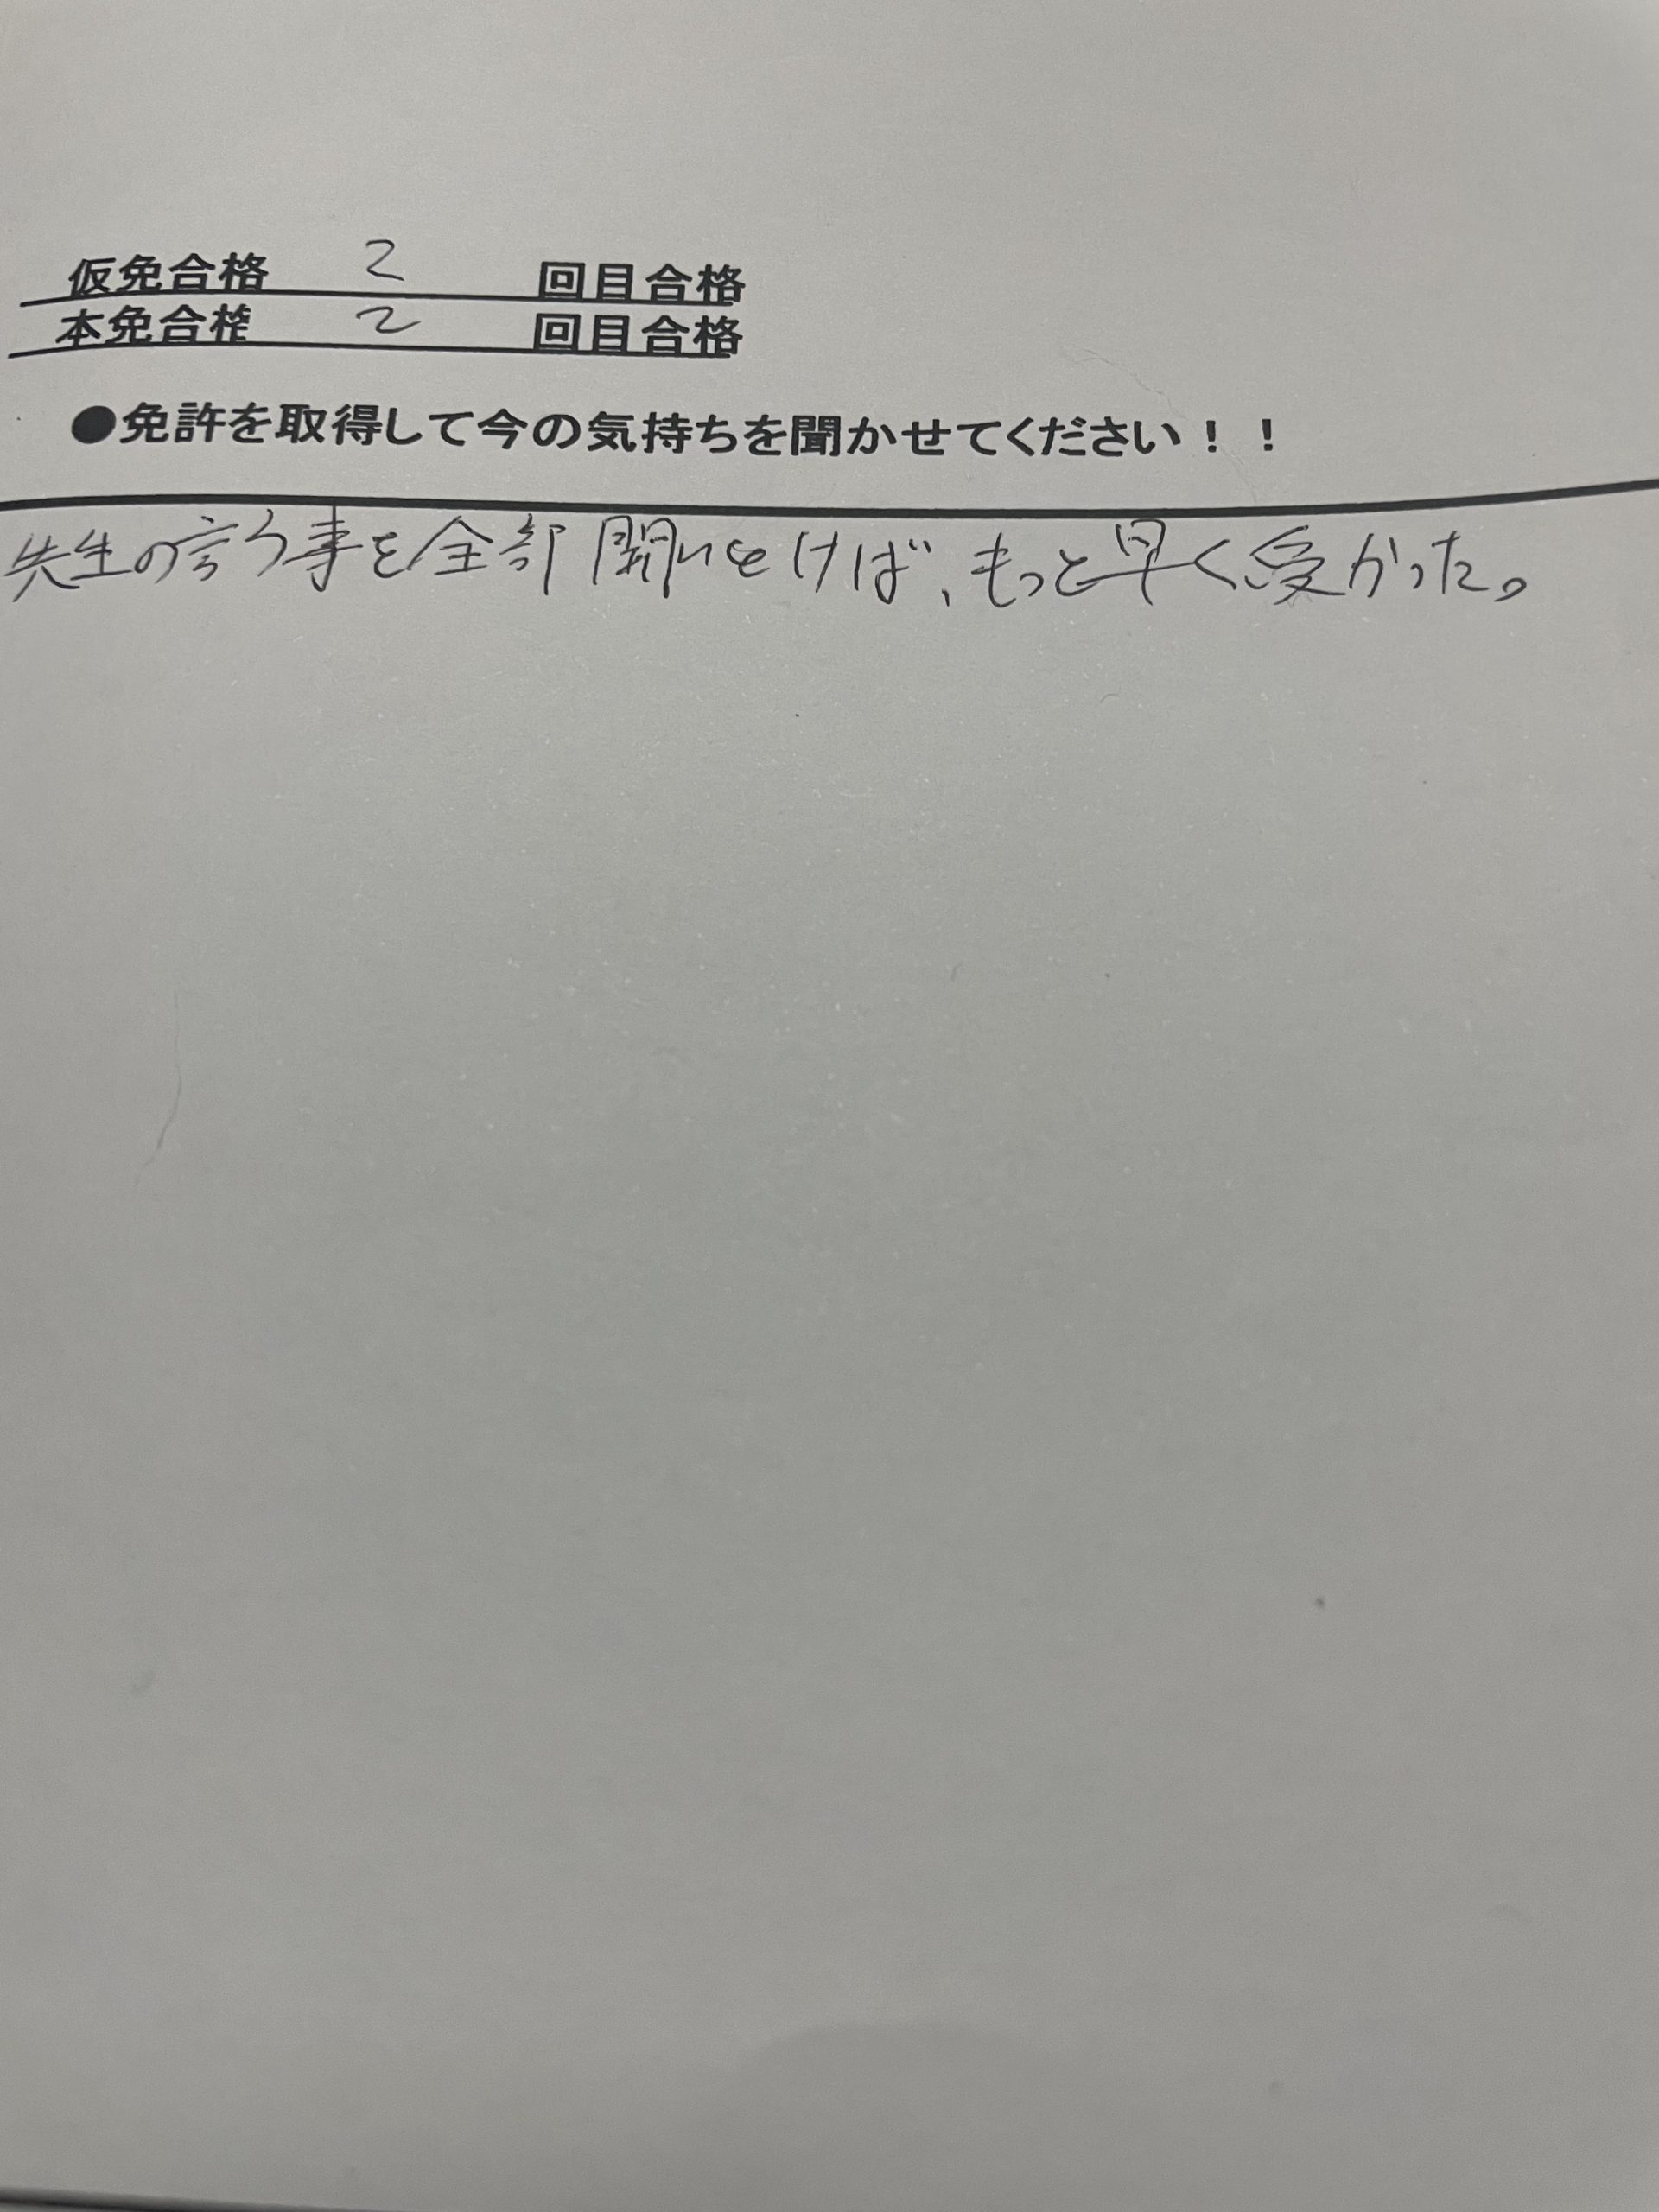 仮免合格 2 回目合格
本免合格 2 回目合格
●免許を取得して今の気持ちを聞かせてください！！
先生の言う事を全部聞いとけば、もっと早く受かった。